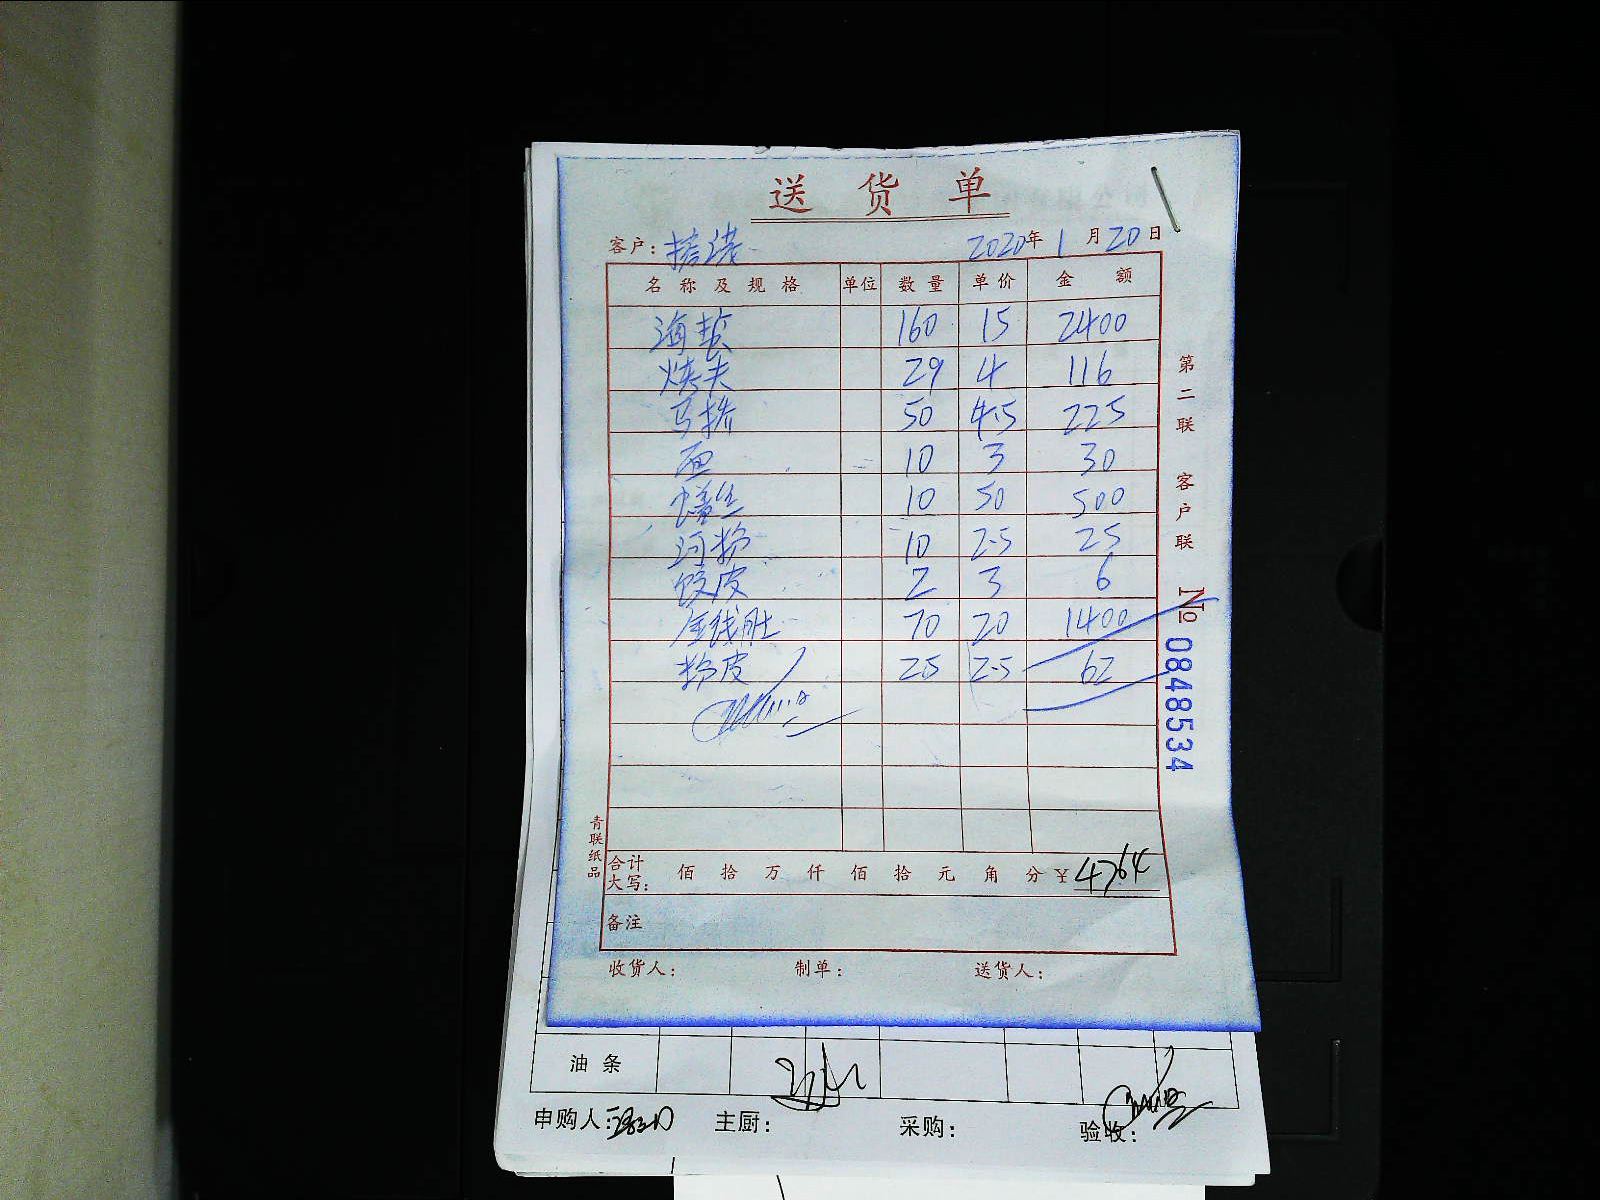 送货单
客户: 2020年1月20日
名称及规格 单位 数量 单价 金额
海蜇 160 15 2400
烤夫 29 4 116
马桥 50 4.5 225
面 10 3 30
鳝丝 10 50 500
河粉 10 2.5 25
饺皮 2 3 6
金钱肚 70 20 1400
粉皮 25 2.5 62
第二联 客户联
№ 0848534
青联纸品
合计大写: 佰 拾 万 仟 佰 拾 元 角 分 ¥ 4764
备注
收货人: 制单: 送货人:
油条
申购人: 主厨: 采购: 验收: